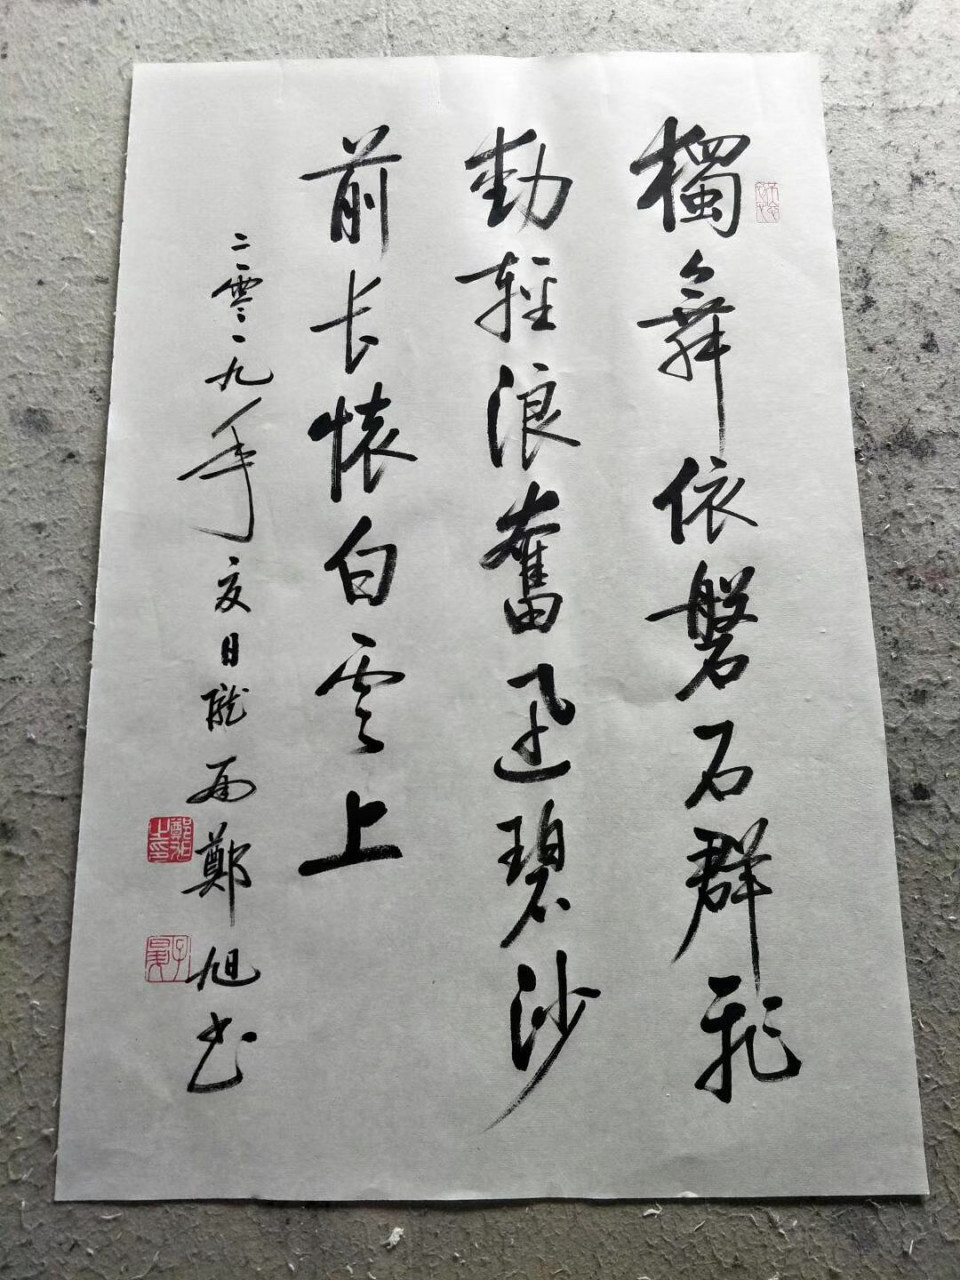 獨舞依磐石群飛
動輕浪奮迅碧沙
前长懷白雲上
二零一九年夏日隴西鄭旭书
鄭旭之印